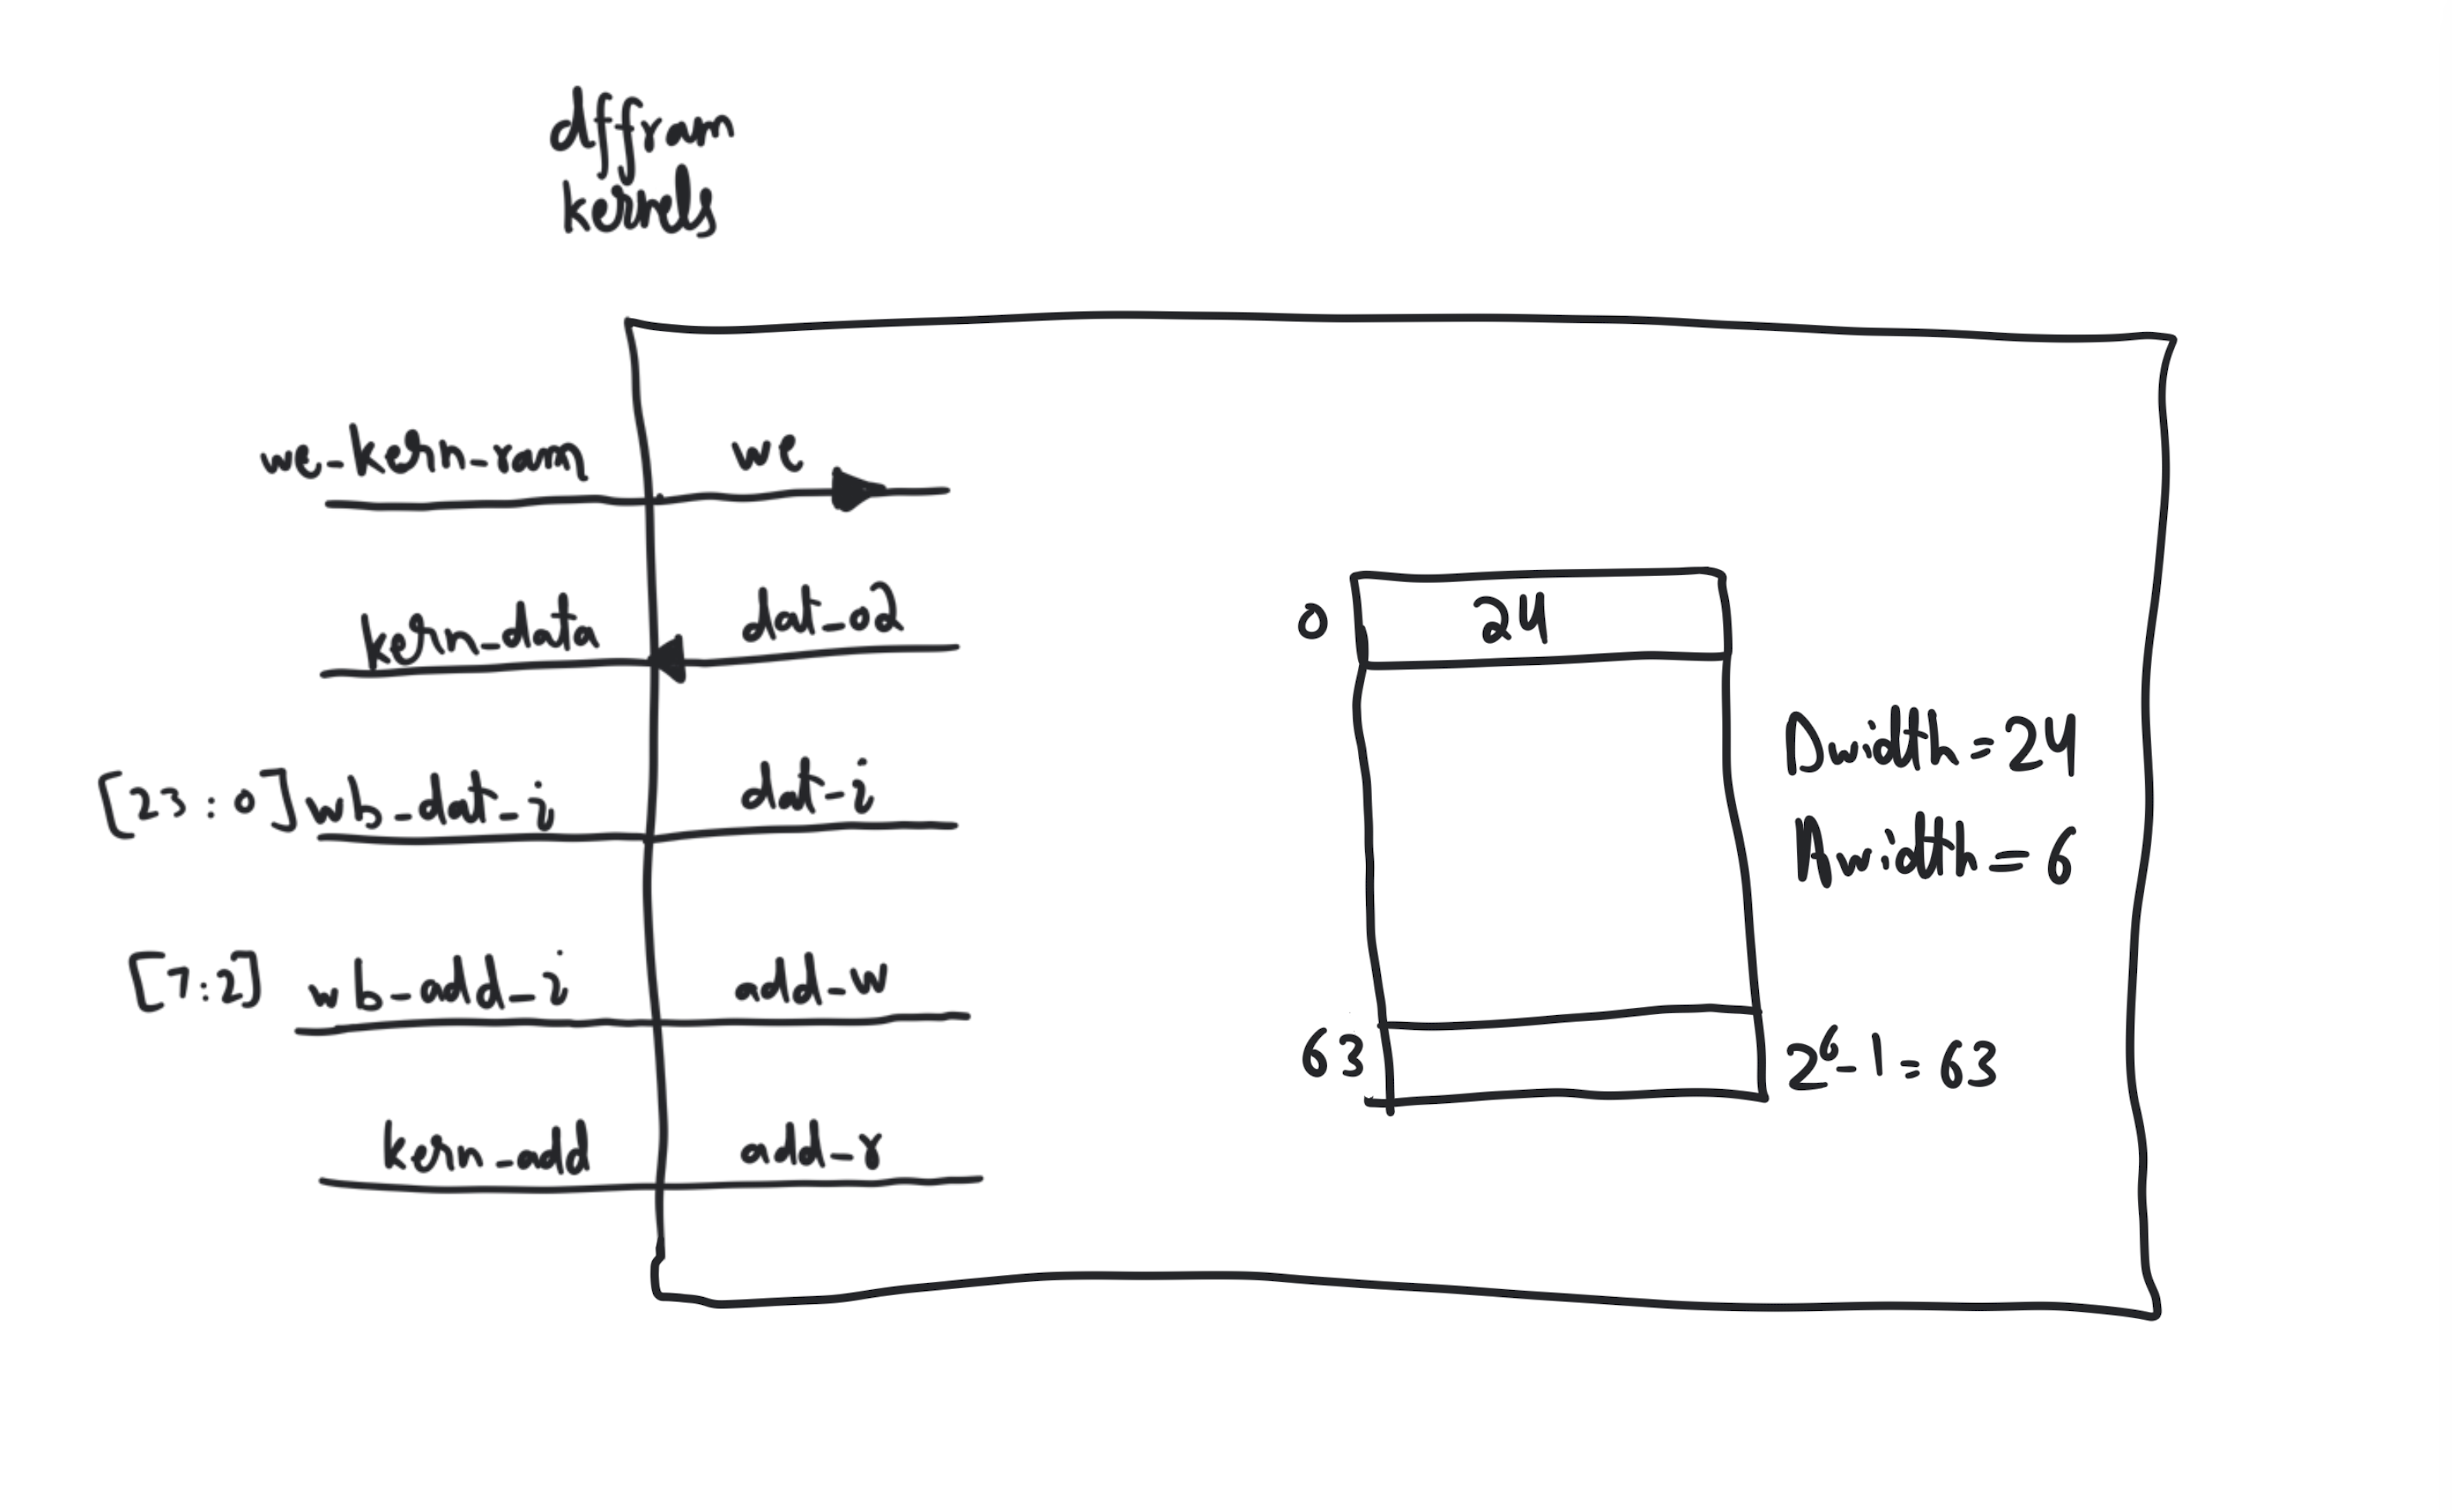 dffram
kernels
we-kern-ram
we
kern-data
dat-o2
[23:0] wb-dat-i
dat-i
[7:2] wb-add-i
add-w
kern-add
add-r
0
24
Dwidth=24
Awidth=6
63
2⁶-1=63